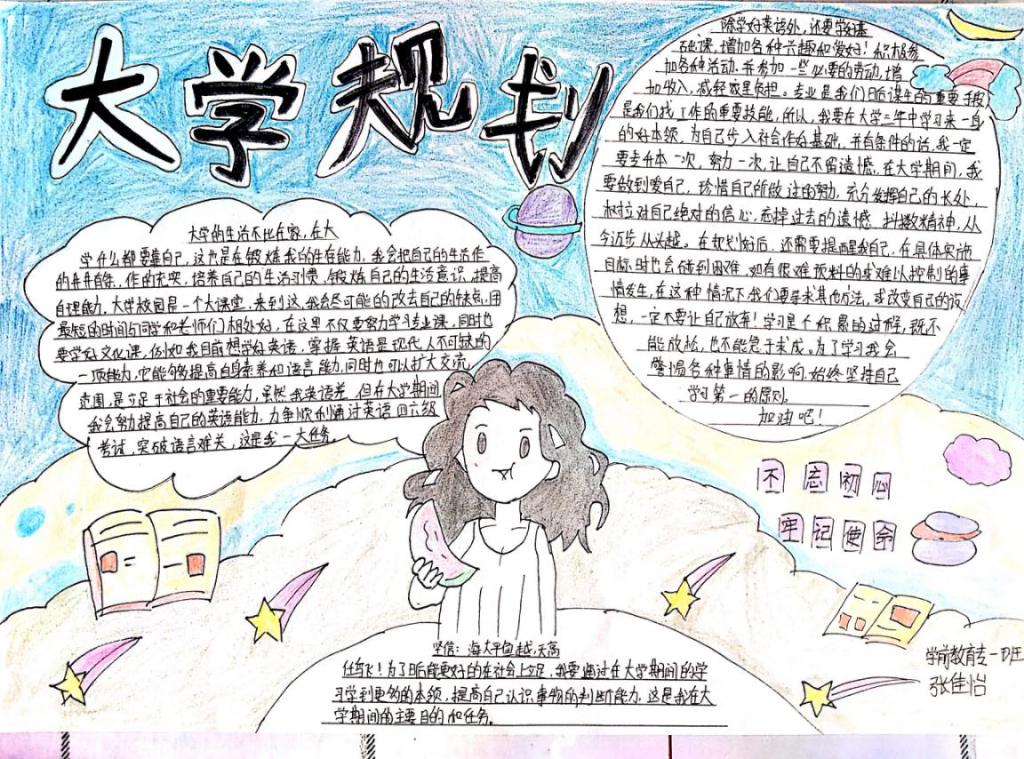 大学规划
大学的生活不比在家,在大
学什么都要靠自己,这也是在锻炼我的生存能力,我会把自己的生活作
的井井有条,作的充实,培养自己的生活习惯,锻炼自己的生活意识,提高
自理能力,大学校园是一个大课堂,来到这,我会尽可能的改去自己的缺点,用
最短的时间与同学和老师们相处好,在这里不仅要努力学习专业课,同时也
要学好文化课,例如我目前想学好英语,掌握英语是现代人不可缺的
一项能力,它能够提高自身素养和语言能力,同时也可以扩大交流
范围,是立足于社会的重要能力,虽然我英语差,但在大学期间
我会努力提高自己的英语能力,力争顺利通过英语四六级
考试,突破语言难关,这是我一大任务。
除学好英语外,还要学好基
础课,增加各种兴趣和爱好!积极参
加各种活动,并参加一些必要的劳动,增
加收入,减轻家里负担。专业是我们日后谋生的重要手段
是我们找工作的重要技能,所以,我要在大学三年中学习来一身
的好本领,为自己步入社会作好基础,并有条件的话,我一定
要专升本一次,努力一次,让自己不留遗憾,在大学期间,我
要做到爱自己,珍惜自己所做过的努力,充分发挥自己的长处,
树立对自己绝对的信心,忘掉过去的遗憾,抖擞精神,从
今迈步从头越。在规划好后,还需要提醒我自己,在具体实施
目标时也会碰到困难,如有很难预料的或难以控制的事
情发生,在这种情况下,我们要寻求其他方法,或改变自己的设
想,一定不要让自己放弃!学习是个积累的过程,既不
能放松,也不能急于求成。为了学习我会
警惕各种事情的影响,始终坚持自己
学习第一的原则。
加油吧!
不忘初心
牢记使命
坚信:海大平鱼越,天高
任鸟飞!为了日后能更好的在社会上立足,我要通过在大学期间的学
习学到更多的本领,提高自己认识事物的判断能力,这是我在大
学期间的主要目的和任务。
学前教育专一 班
张佳怡